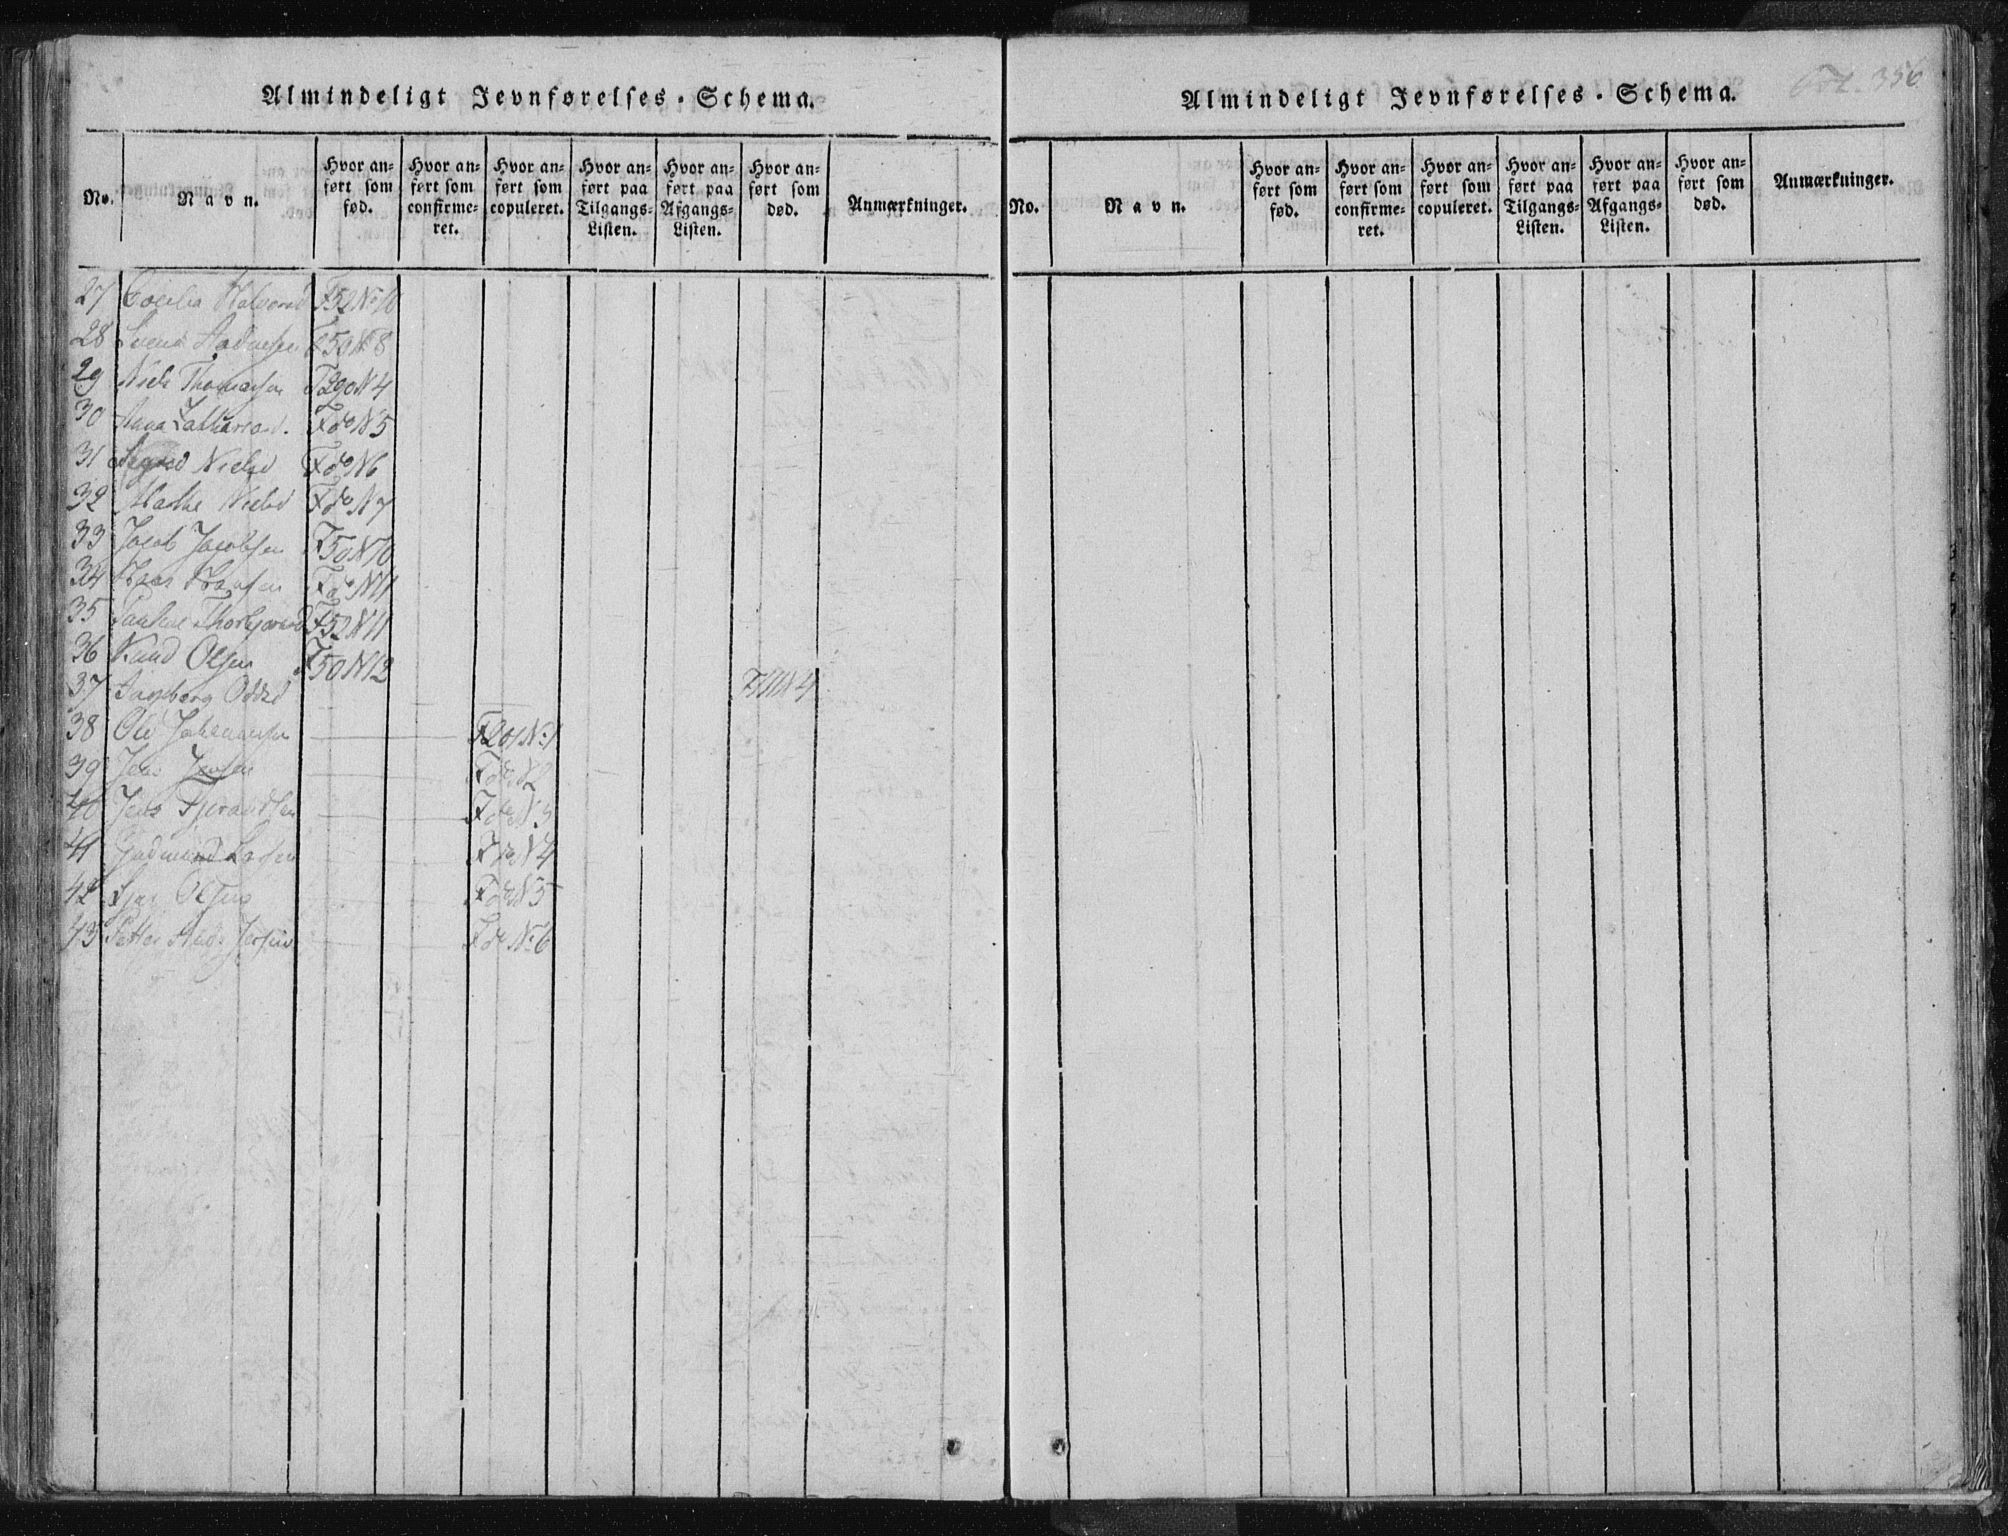 Almindeligt Jevnførelses-Schema.
No. Navn. Hvor anført som fød. Hvor anført som confirmeret. Hvor anført som copuleret. Hvor anført paa Tilgangs-Listen. Hvor anført paa Afgangs-Listen. Hvor anført som død. Anmærkninger.
27 Cecilia Halvorsd F 52 No 10
28 Svend Aadnesen F 50 N 8
29 Niels Thomassen F 290 N 4
30 Anna Zachariasd. F do N 5
31 Sigrid Nielsd F do N 6
32 Marthe Nielsd F do N 7
33 Jacob Jacobsen F 50 N 10
34 Hans Hansen F do N 11
35 F 52 N 11
36 Knud Olsen F 50 N 12
37 Ingeborg N 4
38 Ole Johannesen F 201 No 1
39 Jens Jensen F do N 2
40 Jens F do N 3
41 Gudmund F do N 4
42 Olsen F do N 5
43 Petter F do No 6
Fol. 356
Almindeligt Jevnførelses-Schema.
No. Navn. Hvor anført som fød. Hvor anført som confirmeret. Hvor anført som copuleret. Hvor anført paa Tilgangs-Listen. Hvor anført paa Afgangs-Listen. Hvor anført som død. Anmærkninger.